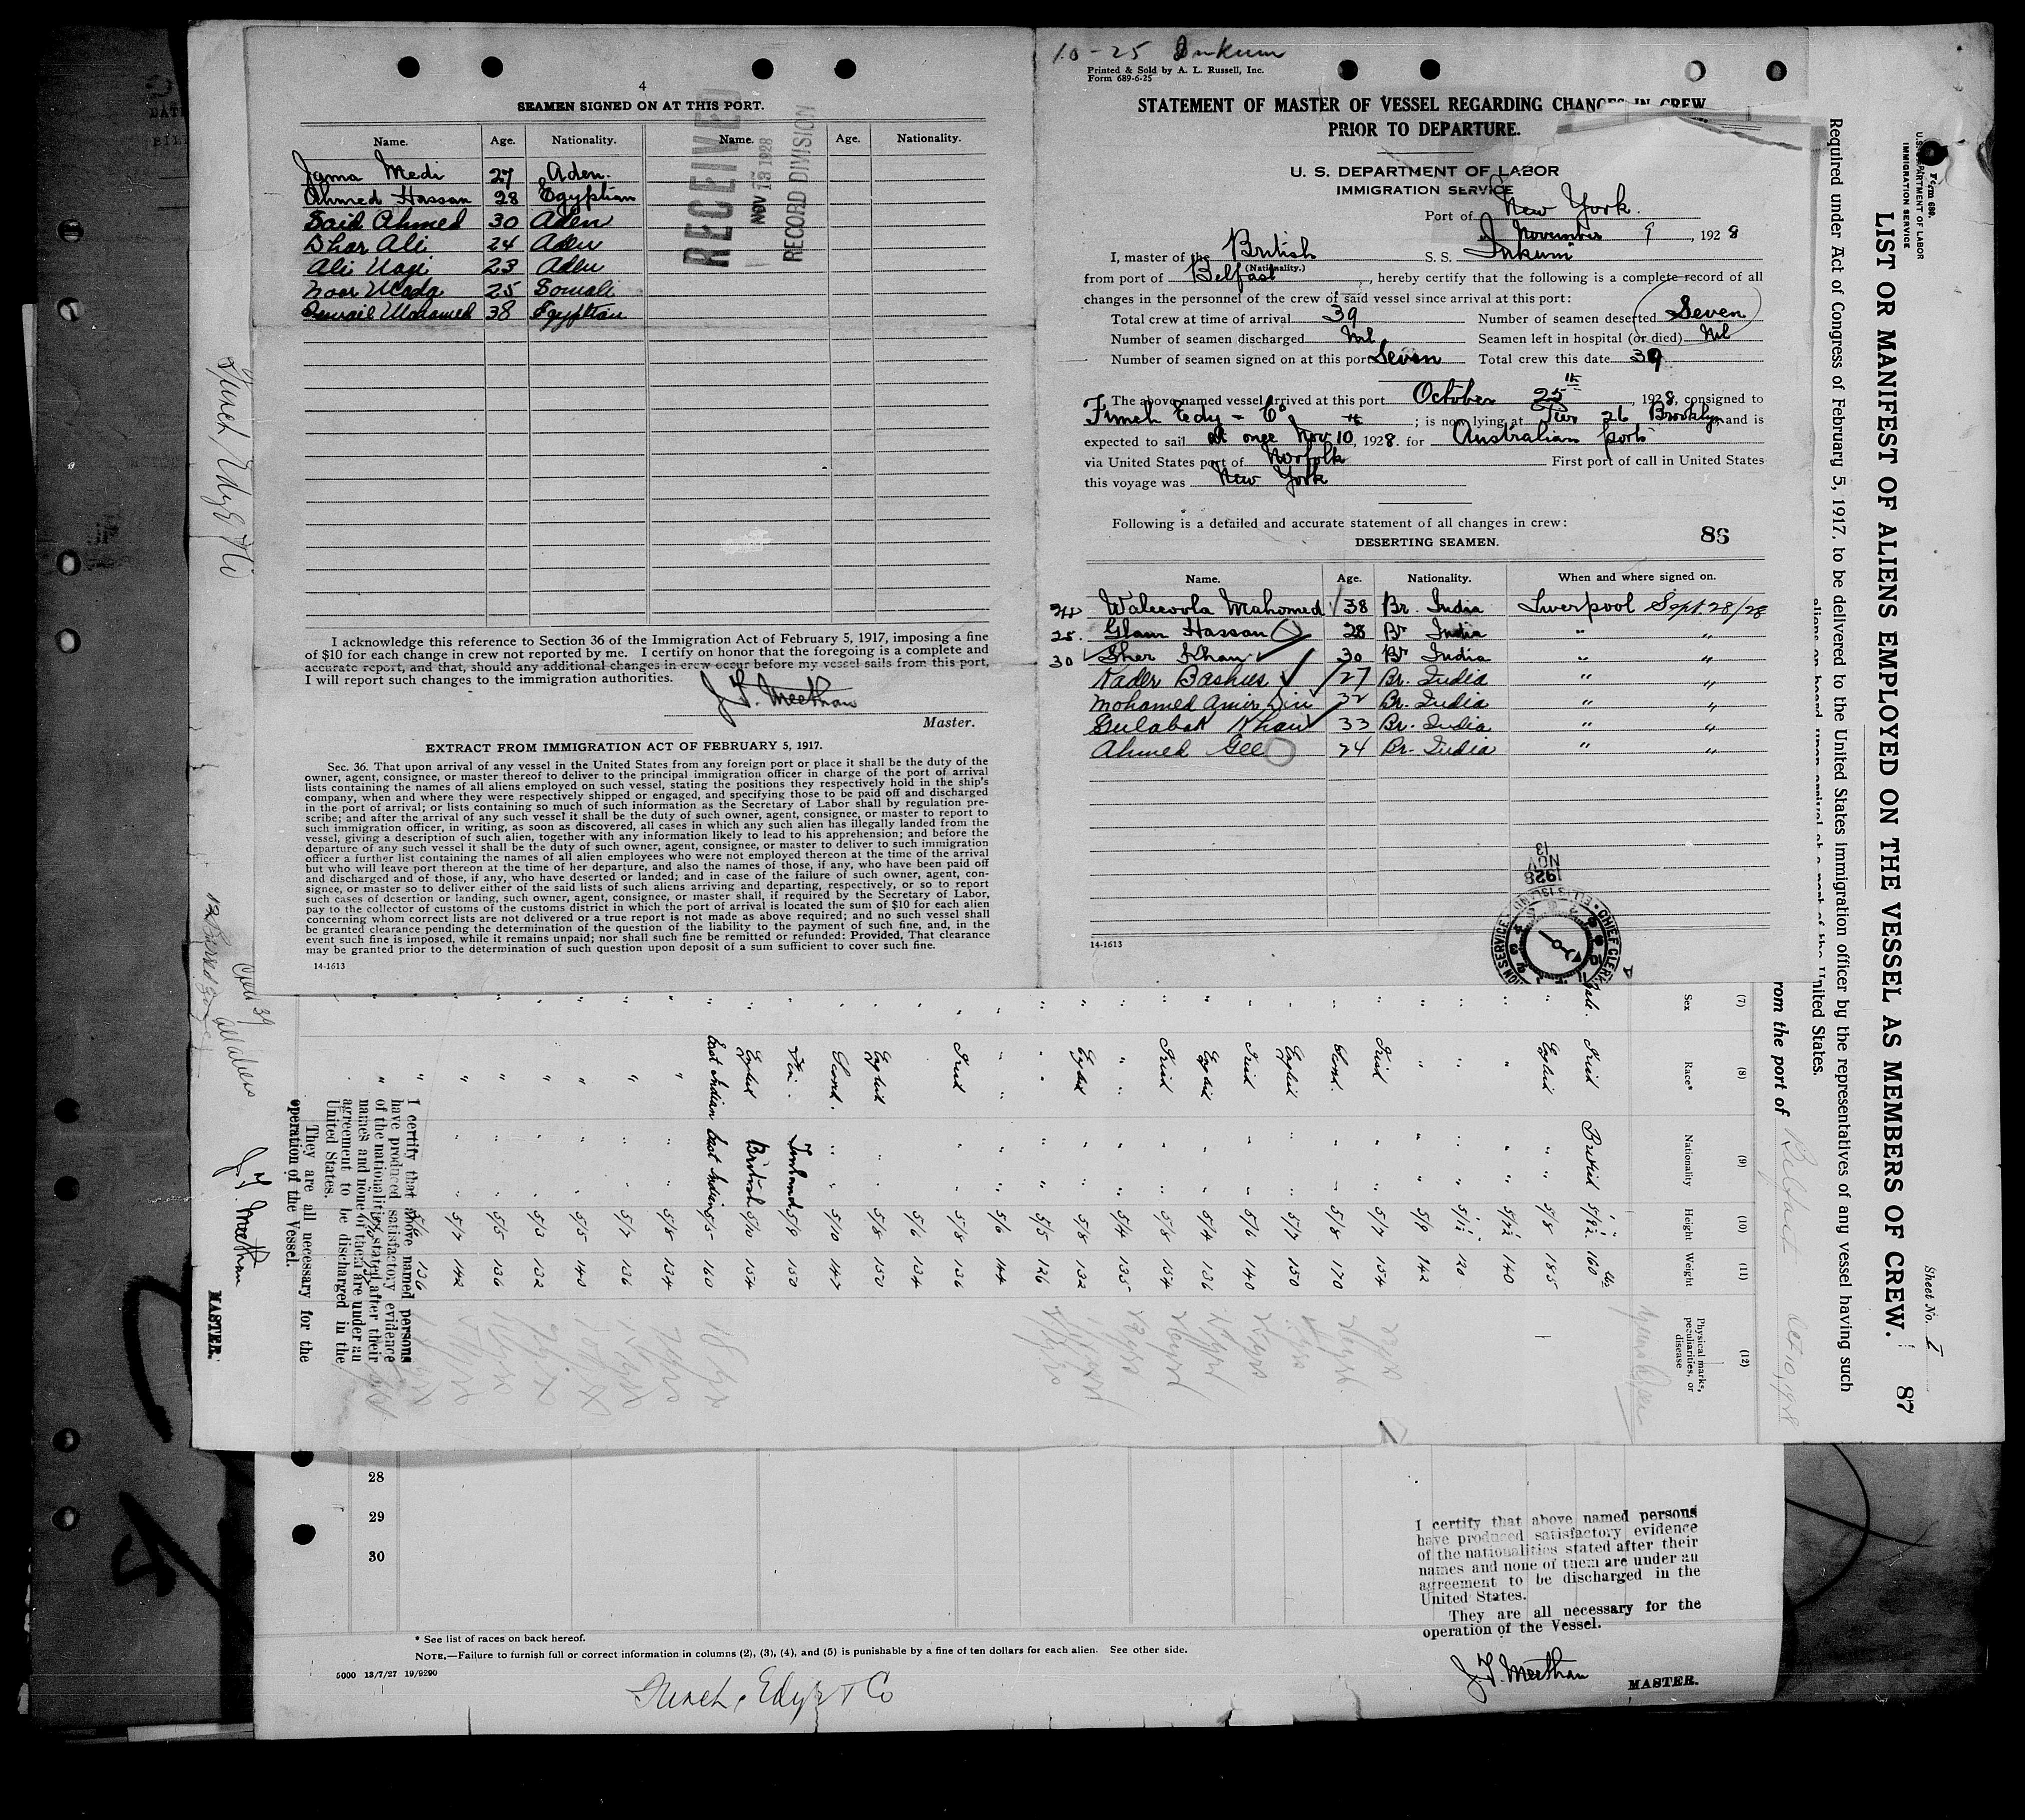 4
SEAMEN SIGNED ON AT THIS PORT.
Name. Age. Nationality. Name. Age. Nationality.
Jama Medi 27 Aden.
Ahmed Hassan 28 Egyptian
Said Ahmed 30 Aden
Dhar Ali 24 Aden
Ali Nagi 23 Aden
Noor 25 Somali
Ismail Mohamed 38 Egyptian
RECEIVED
NOV 13 1928
RECORD DIVISION
I acknowledge this reference to Section 36 of the Immigration Act of February 5, 1917, imposing a fine
of $10 for each change in crew not reported by me. I certify on honor that the foregoing is a complete and
accurate report, and that, should any additional changes in crew occur before my vessel sails from this port,
I will report such changes to the immigration authorities.
J. F. Meethan
Master.
EXTRACT FROM IMMIGRATION ACT OF FEBRUARY 5, 1917.
Sec. 36. That upon arrival of any vessel in the United States from any foreign port or place it shall be the duty of the
owner, agent, consignee, or master thereof to deliver to the principal immigration officer in charge of the port of arrival
lists containing the names of all aliens employed on such vessel, stating the positions they respectively hold in the ship's
company, when and where they were respectively shipped or engaged, and specifying those to be paid off and discharged
in the port of arrival; or lists containing so much of such information as the Secretary of Labor shall by regulation pre-
scribe; and after the arrival of any such vessel it shall be the duty of such owner, agent, consignee, or master to report to
such immigration officer, in writing, as soon as discovered, all cases in which any such alien has illegally landed from the
vessel, giving a description of such alien, together with any information likely to lead to his apprehension; and before the
departure of any such vessel it shall be the duty of such owner, agent, consignee, or master to deliver to such immigration
officer a further list containing the names of all alien employees who were not employed thereon at the time of the arrival
but who will leave port thereon at the time of her departure, and also the names of those, if any, who have been paid off
and discharged and of those, if any, who have deserted or landed; and in case of the failure of such owner, agent, con-
signee, or master so to deliver either of the said lists of such aliens arriving and departing, respectively, or so to report
such cases of desertion or landing, such owner, agent, consignee, or master shall, if required by the Secretary of Labor,
pay to the collector of customs of the customs district in which the port of arrival is located the sum of $10 for each alien
concerning whom correct lists are not delivered or a true report is not made as above required; and no such vessel shall
be granted clearance pending the determination of the question of the liability to the payment of such fine, and, in the
event such fine is imposed, while it remains unpaid; nor shall such fine be remitted or refunded: Provided, That clearance
may be granted prior to the determination of such question upon deposit of a sum sufficient to cover such fine.
14-1613
10-25 Inkum
Printed & Sold by A. L. Russell, Inc.
Form 689-6-25
STATEMENT OF MASTER OF VESSEL REGARDING CHANGES IN CREW
PRIOR TO DEPARTURE.
U. S. DEPARTMENT OF LABOR
IMMIGRATION SERVICE
Port of New York.
November 9, 1928
I, master of the British S. S. Inkum
(Nationality.)
from port of Belfast, hereby certify that the following is a complete record of all
changes in the personnel of the crew of said vessel since arrival at this port:
Total crew at time of arrival 39 Number of seamen deserted Seven
Number of seamen discharged Nil Seamen left in hospital (or died) Nil
Number of seamen signed on at this port Seven Total crew this date 39
The above-named vessel arrived at this port October 25th, 1928, consigned to
Funch Edy - Co; is now lying at Pier 26 Brooklyn and is
expected to sail at once Nov 10th, 1928. for Australian ports
via United States port of Norfolk First port of call in United States
this voyage was New York
Following is a detailed and accurate statement of all changes in crew:
86
DESERTING SEAMEN.
Name. Age. Nationality. When and where signed on.
Waleeoola Mahomed 38 Br. India Liverpool Sept 28/28
25. Glam Hassan 28 Br India " "
30 Sher Khan 30 Br India " "
Kader Bashus 27 Br. India " "
Mohamed Amir Din 32 Br. India " "
Gulabat Khan 33 Br. India " "
Ahmed Gee 24 Br. India " "
NOV 13 1928
CHIEF CLERK
14-1613
Form 689.
U. S. DEPARTMENT OF LABOR
IMMIGRATION SERVICE
Sheet No. I
87
LIST OR MANIFEST OF ALIENS EMPLOYED ON THE VESSEL AS MEMBERS OF CREW.
Required under Act of Congress of February 5, 1917, to be delivered to the United States immigration officer by the representatives of any vessel having such
aliens on board upon arrival at a port of the United States.
rom the port of Belfast Oct 10, 1928
(7) (8) (9) (10) (11) (12)
Sex Race* Nationality Height Weight Physical marks, peculiarities, or disease
Irish British 5/9½ 160 lbs
English " 5/8 185
" " 5/7½ 140
" " 5/11 120
" " 5/9 142
Irish " 5/7 154
Scand. " 5/8 170
English " 5/7 150
Irish " 5/6 140
English " 5/4 136
Irish " 5/8 154
" " 5/4 135
English " 5/8 132
" " 5/5 126
" " 5/6 144
Irish " 5/8 136
" 5/6 134
English " 5/8 150
Scand. " 5/10 147
Fin. Finland 5/9 150
English British 5/10 154
East Indian East Indian 5/5 160
" " 5/8 134
" " 5/7 136
" " 5/5 140
" " 5/3 132
" " 5/5 136
" " 5/7 142
" 136
I certify that above named persons
have produced satisfactory evidence
of the nationalities stated after their
names and none of them are under an
agreement to be discharged in the
United States.
They are all necessary for the
operation of the Vessel.
J. F. Meethan
MASTER.
Crew 39
Funch, Edye & Co
28
29
30
I certify that above named persons
have produced satisfactory evidence
of the nationalities stated after their
names and none of them are under an
agreement to be discharged in the
United States.
They are all necessary for the
operation of the Vessel.
J. F. Meethan
MASTER.
* See list of races on back hereof.
NOTE.—Failure to furnish full or correct information in columns (2), (3), (4), and (5) is punishable by a fine of ten dollars for each alien. See other side.
5000 13/7/27 19/9290
Funch, Edye & Co